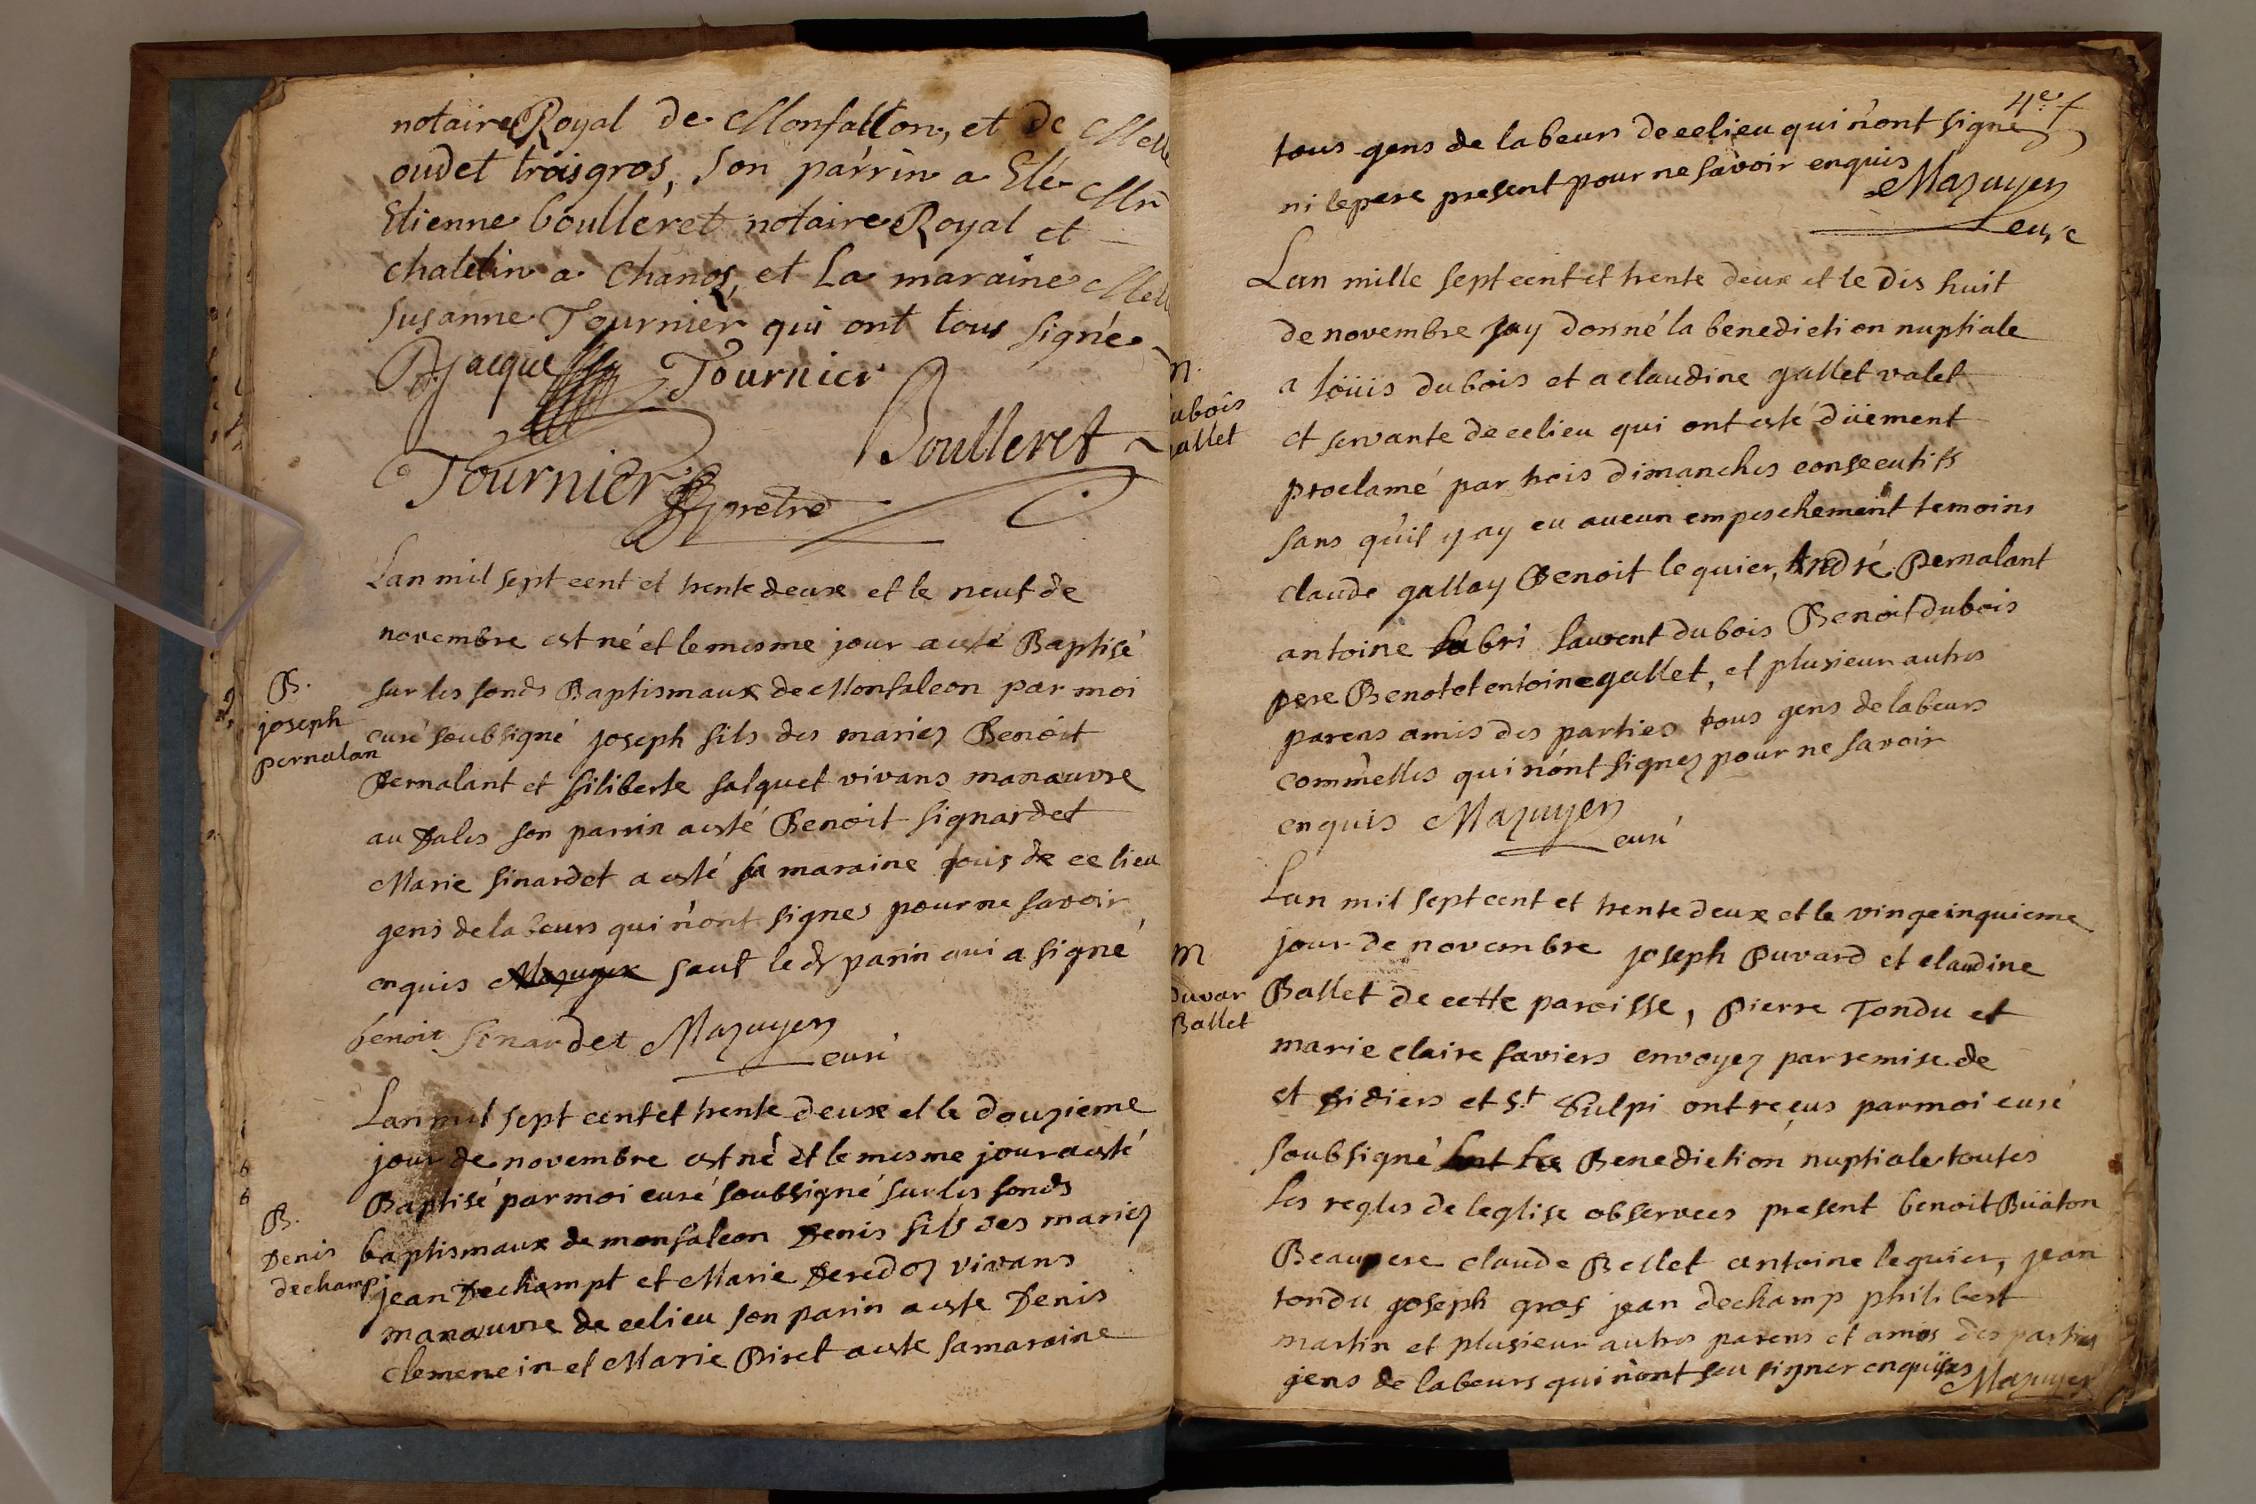 notaire Royal de Monfallon, et de Melle
oudet troisgros, son parrin a Ete Mr
Etienne boulleret notaire Royal et
chatelin a Chanos, et La maraine Melle
susanne Tournier qui ont tous signé
Jacque Tournier
Boulleret
Tournier pretre
Lan mil sept cent et trente deux et le neuf de
novembre est né et le mesme jour a esté Baptisé
B.
joseph
pernalan
sur les fonds Baptismaux de Monfaleon par moi
curé soubsigné joseph fils des mariez Benoit
Pernalant et filiberte falquet vivans manœuvre
au Dales son parrin a esté Benoit signardet
Marie sinardet a esté sa maraine tous de ce lieu
gens de labeurs qui n'ont signes pour ne savoir
enquis Mazuyer sauf le d parin qui a signé
benoit Sinardet Mazuyer
curé
Lan mil sept cent et trente deux et le douzieme
jour de novembre est né et le mesme jour a esté
B.
Denis
dechamp
Baptisé par moi curé soubsigné sur les fonds
baptismaux de monfaleon Denis fils des mariez
jean Dechampt et Marie Deredoz vivans
manœuvre de ce lieu son parin a este Denis
clemencin et Marie Piret a este sa maraine
4e f
tous gens de labeurs de ce lieu qui n'ont signe
ni le pere present pour ne savoir enquis
Mazuyer
curé
Lan mille sept cent et trente deux et le dis huit
de novembre jay donné la benediction nuptiale
M.
ubois
allet
a loüis dubois et a claudine gallet valet
et servante de ce lieu qui ont esté düement
proclamé par trois dimanches consecutifs
sans qu'il y ay eu aucun empeschement temoins
claude gallay Benoit lequier, André Pernalant
antoine fabri laurent dubois Benoit dubois
pere Benot et entoine gallet, et plusieur autres
parens amis des parties tous gens de labeurs
comm'elles qui n'ont signez pour ne savoir
enquis Mazuyer
curé
Lan mil sept cent et trente deux et le vingcinquieme
M
Duvar
Ballet
jour de novembre joseph Duvard et claudine
Ballet de cette paroisse, Pierre Tondu et
marie claire faviers envoyez par remise de
st Didiers et St Sulpi ont reçus par moi curé
soubsigné la Benediction nuptiale toutes
les regles de leglise observees present benoit Büaton
Beaupere claude Bellet antoine lequier, jean
tondu joseph gros jean dechamp philibert
martin et plusieur autres parens et amis des parties
gens de labeurs qui n'ont seu signer enquises Mazuyer